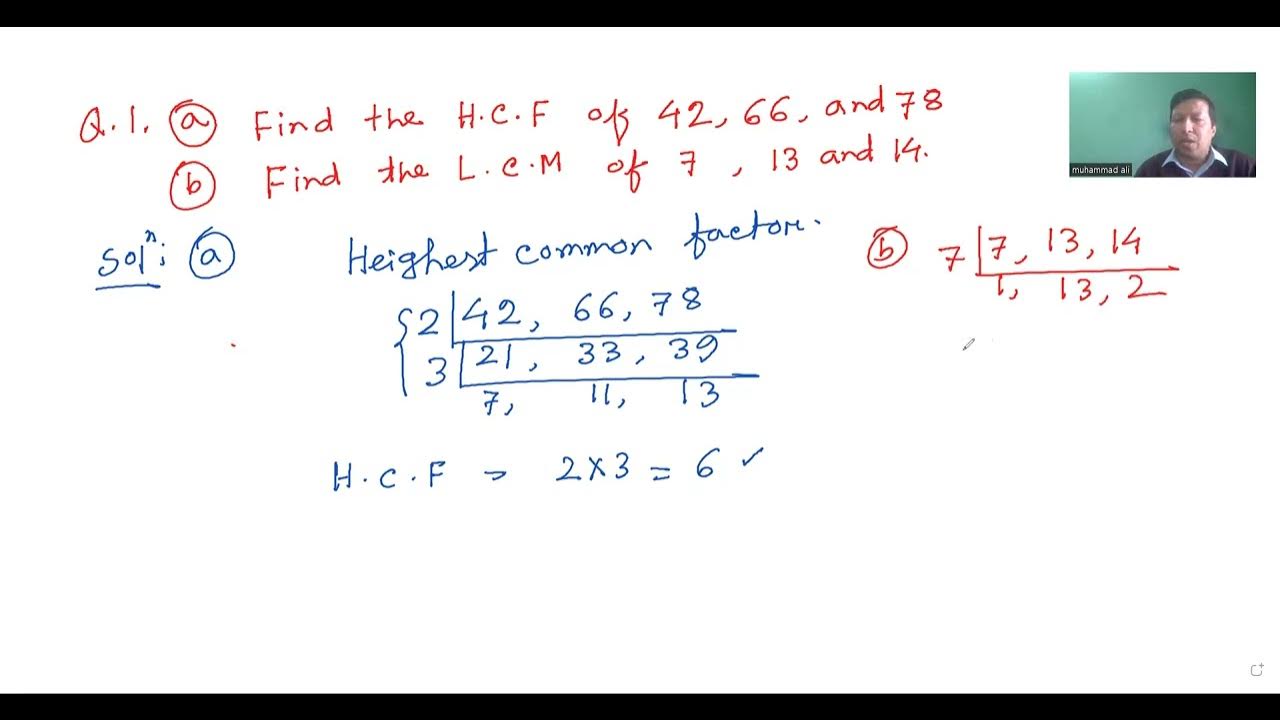 Q.1. (a) Find the H.C.F of 42, 66, and 78
(b) Find the L.C.M of 7, 13 and 14.
muhammad ali
Solⁿ: (a) Heighest common factor.
2 | 42, 66, 78
3 | 21, 33, 39
7, 11, 13
H.C.F = 2×3 = 6 ✓
(b) 7 | 7, 13, 14
1, 13, 2